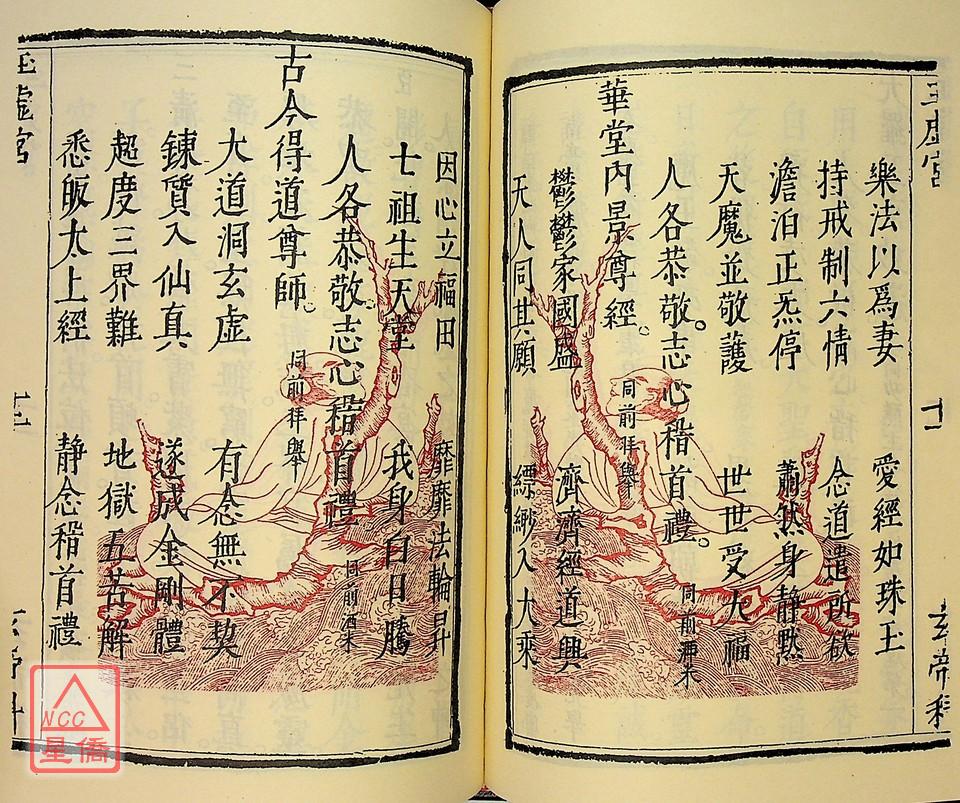 玉虛宮
十
玄帝科
樂法以爲妻 愛經如珠玉
持戒制六情 念道遣所欲
澹泊正炁停 蕭然身静黙
天魔並敬護 世世受大福
人各恭敬。志心稽首禮。同前洒米
華堂內景尊經。同前拜舉
鬱鬱家國盛 濟濟經道興
天人同其願 縹緲入大乘
因心立福田 靡靡法輪昇
七祖生天堂 我身白日騰
人各恭敬。志心稽首禮 同前洒米
古今得道尊師。同前拜舉
大道洞玄虛 有念無不契
鍊質入仙真 遂成金剛體
超度三界難 地獄五苦解
悉皈太上經 静念稽首禮
玉虛宮
NCC
星僑